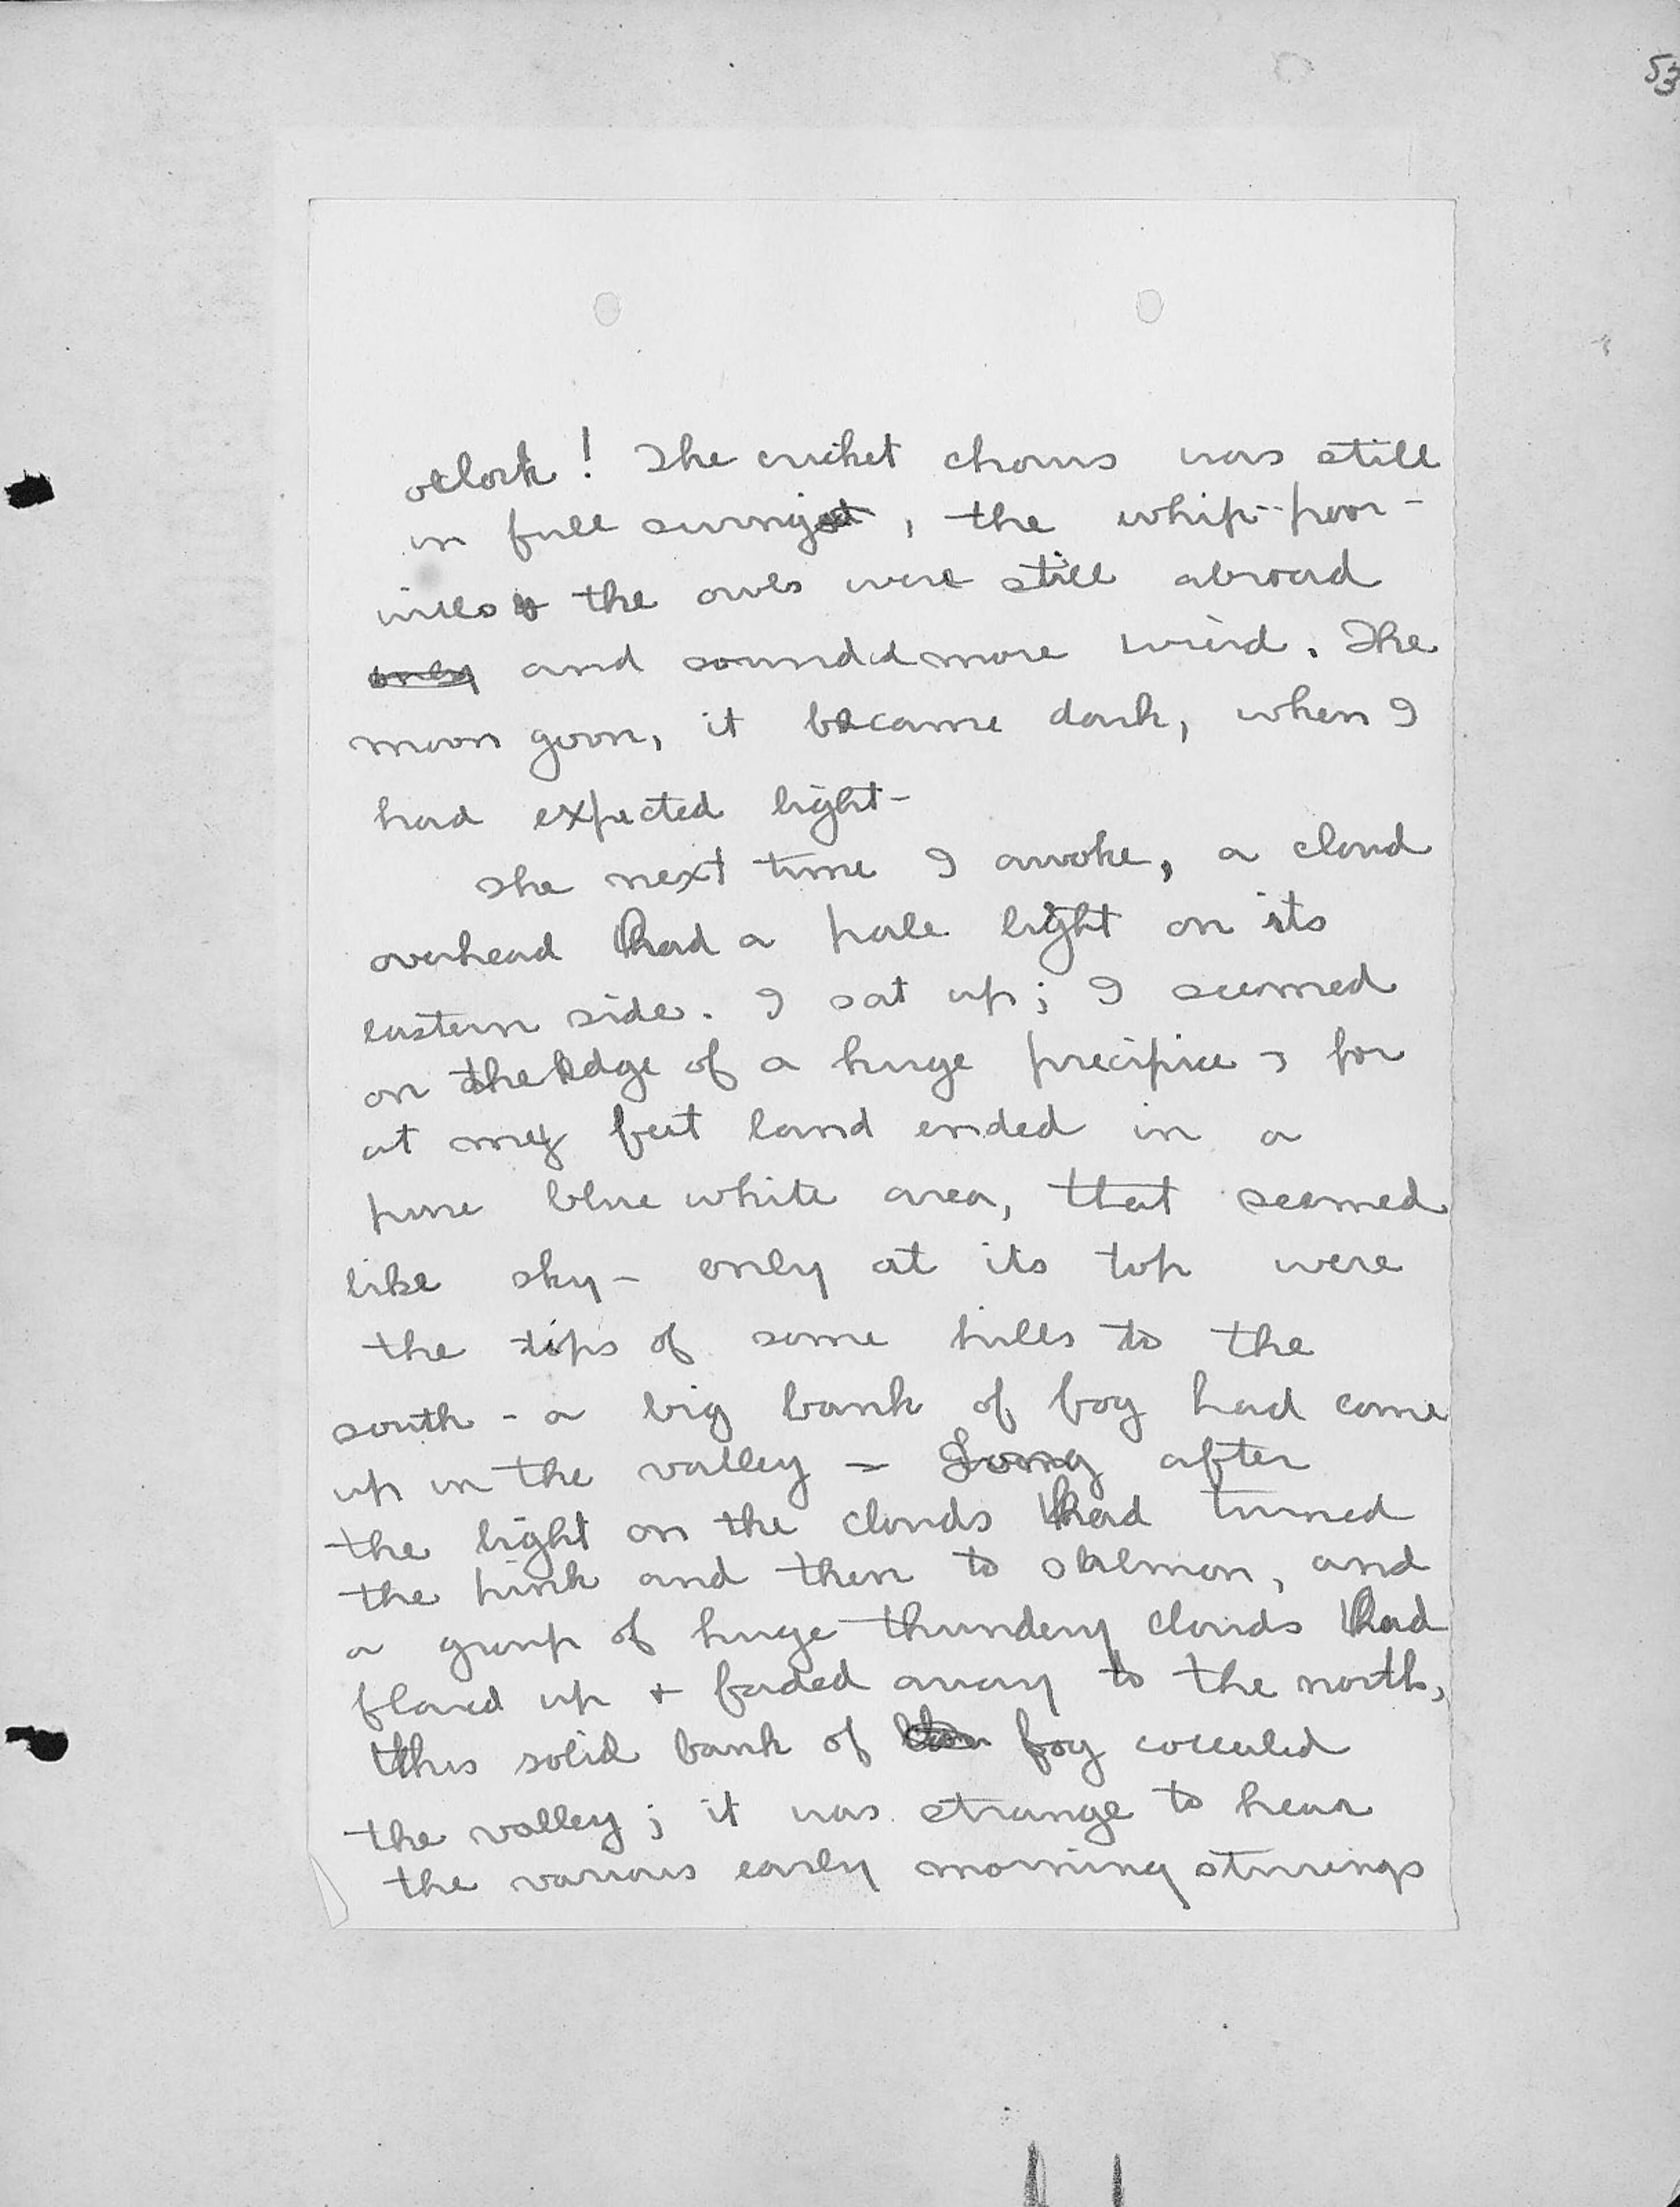 53
oclock! The cricket chorus was still
in full swing, the whip-poor-
wills & the owls were still abroad
only and sounded more weird. The
moon goon, it became dark, when I
had expected light-
The next time I awoke, a cloud
overhead had a pale light on its
eastern side. I sat up; I seemed
on the edge of a huge precipice, for
at my feet land ended in a
pure blue white area, that seemed
like sky - only at its top were
the tips of some hills to the
south - a big bank of fog had come
up in the valley - Long after
the light on the clouds had turned
the pink and then to salmon, and
a group of huge thundery clouds had
flared up + faded away to the north,
this solid bank of fog cocealed
the valley; it was strange to hear
the various early morning stirrings